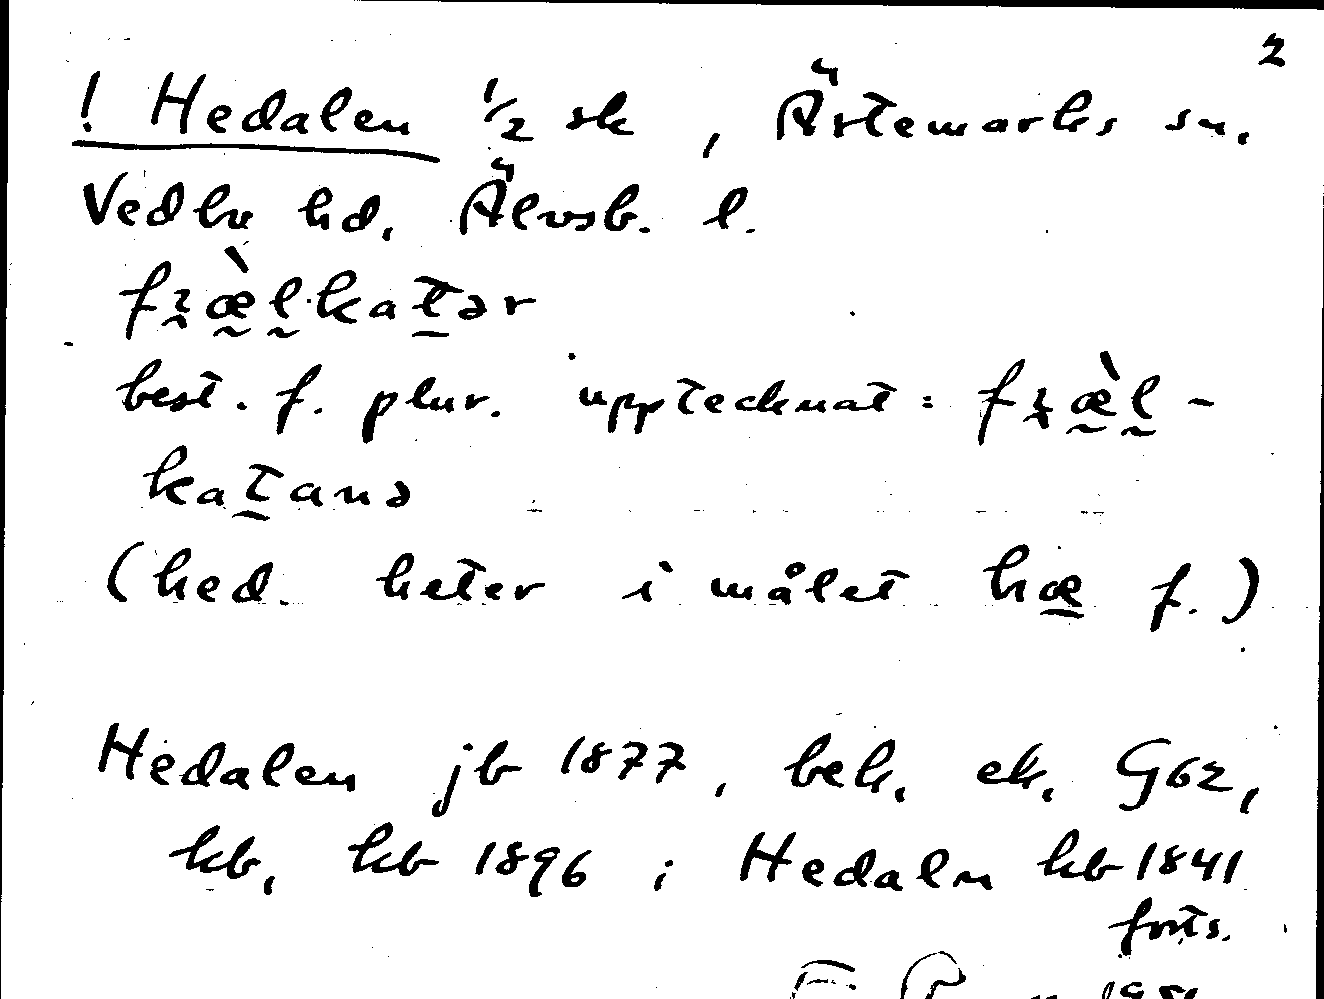 2
! Hedalen 1/2 sk, Ärtemarks sn.
Vedbo hd, Älvsb. l.
fræ̀lkatər
best. f. plur. upptecknat: fræ̀l-
katanə
(hed. heter i målet hæ f.)
Hedalen jb 1877, bek. ek. G62,
kb, kb 1896 ; Hedaln kb 1841
forts.